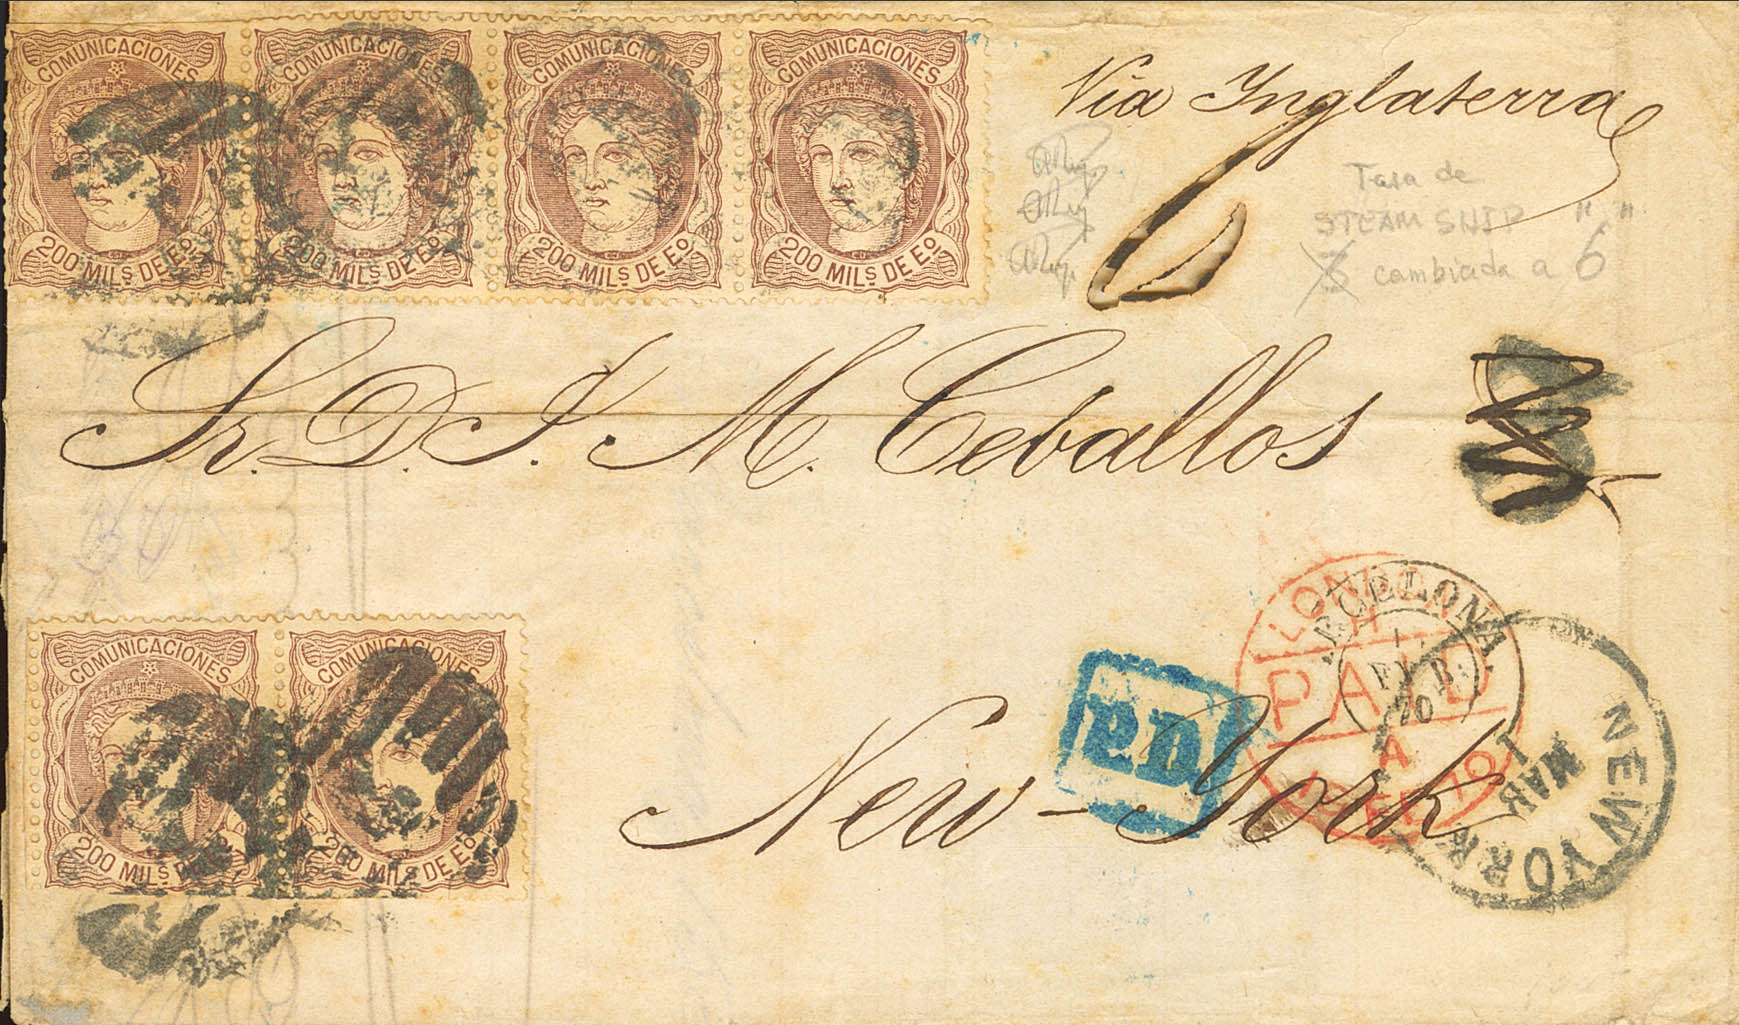 COMUNICACIONES
200 MILS DE Eº
COMUNICACIONES
200 MILS DE Eº
COMUNICACIONES
200 MILS DE Eº
COMUNICACIONES
200 MILS DE Eº
Via Inglaterra
6
Tasa de
STEAM SHIP " "
3 cambiada a 6
Sr. D. J. M. Ceballos
COMUNICACIONES
200 MILS DE Eº
COMUNICACIONES
200 MILS DE Eº
New-York
P.D.
LONDON
PAID
A
70
RCELONA
70
NEW YORK
MAR
1